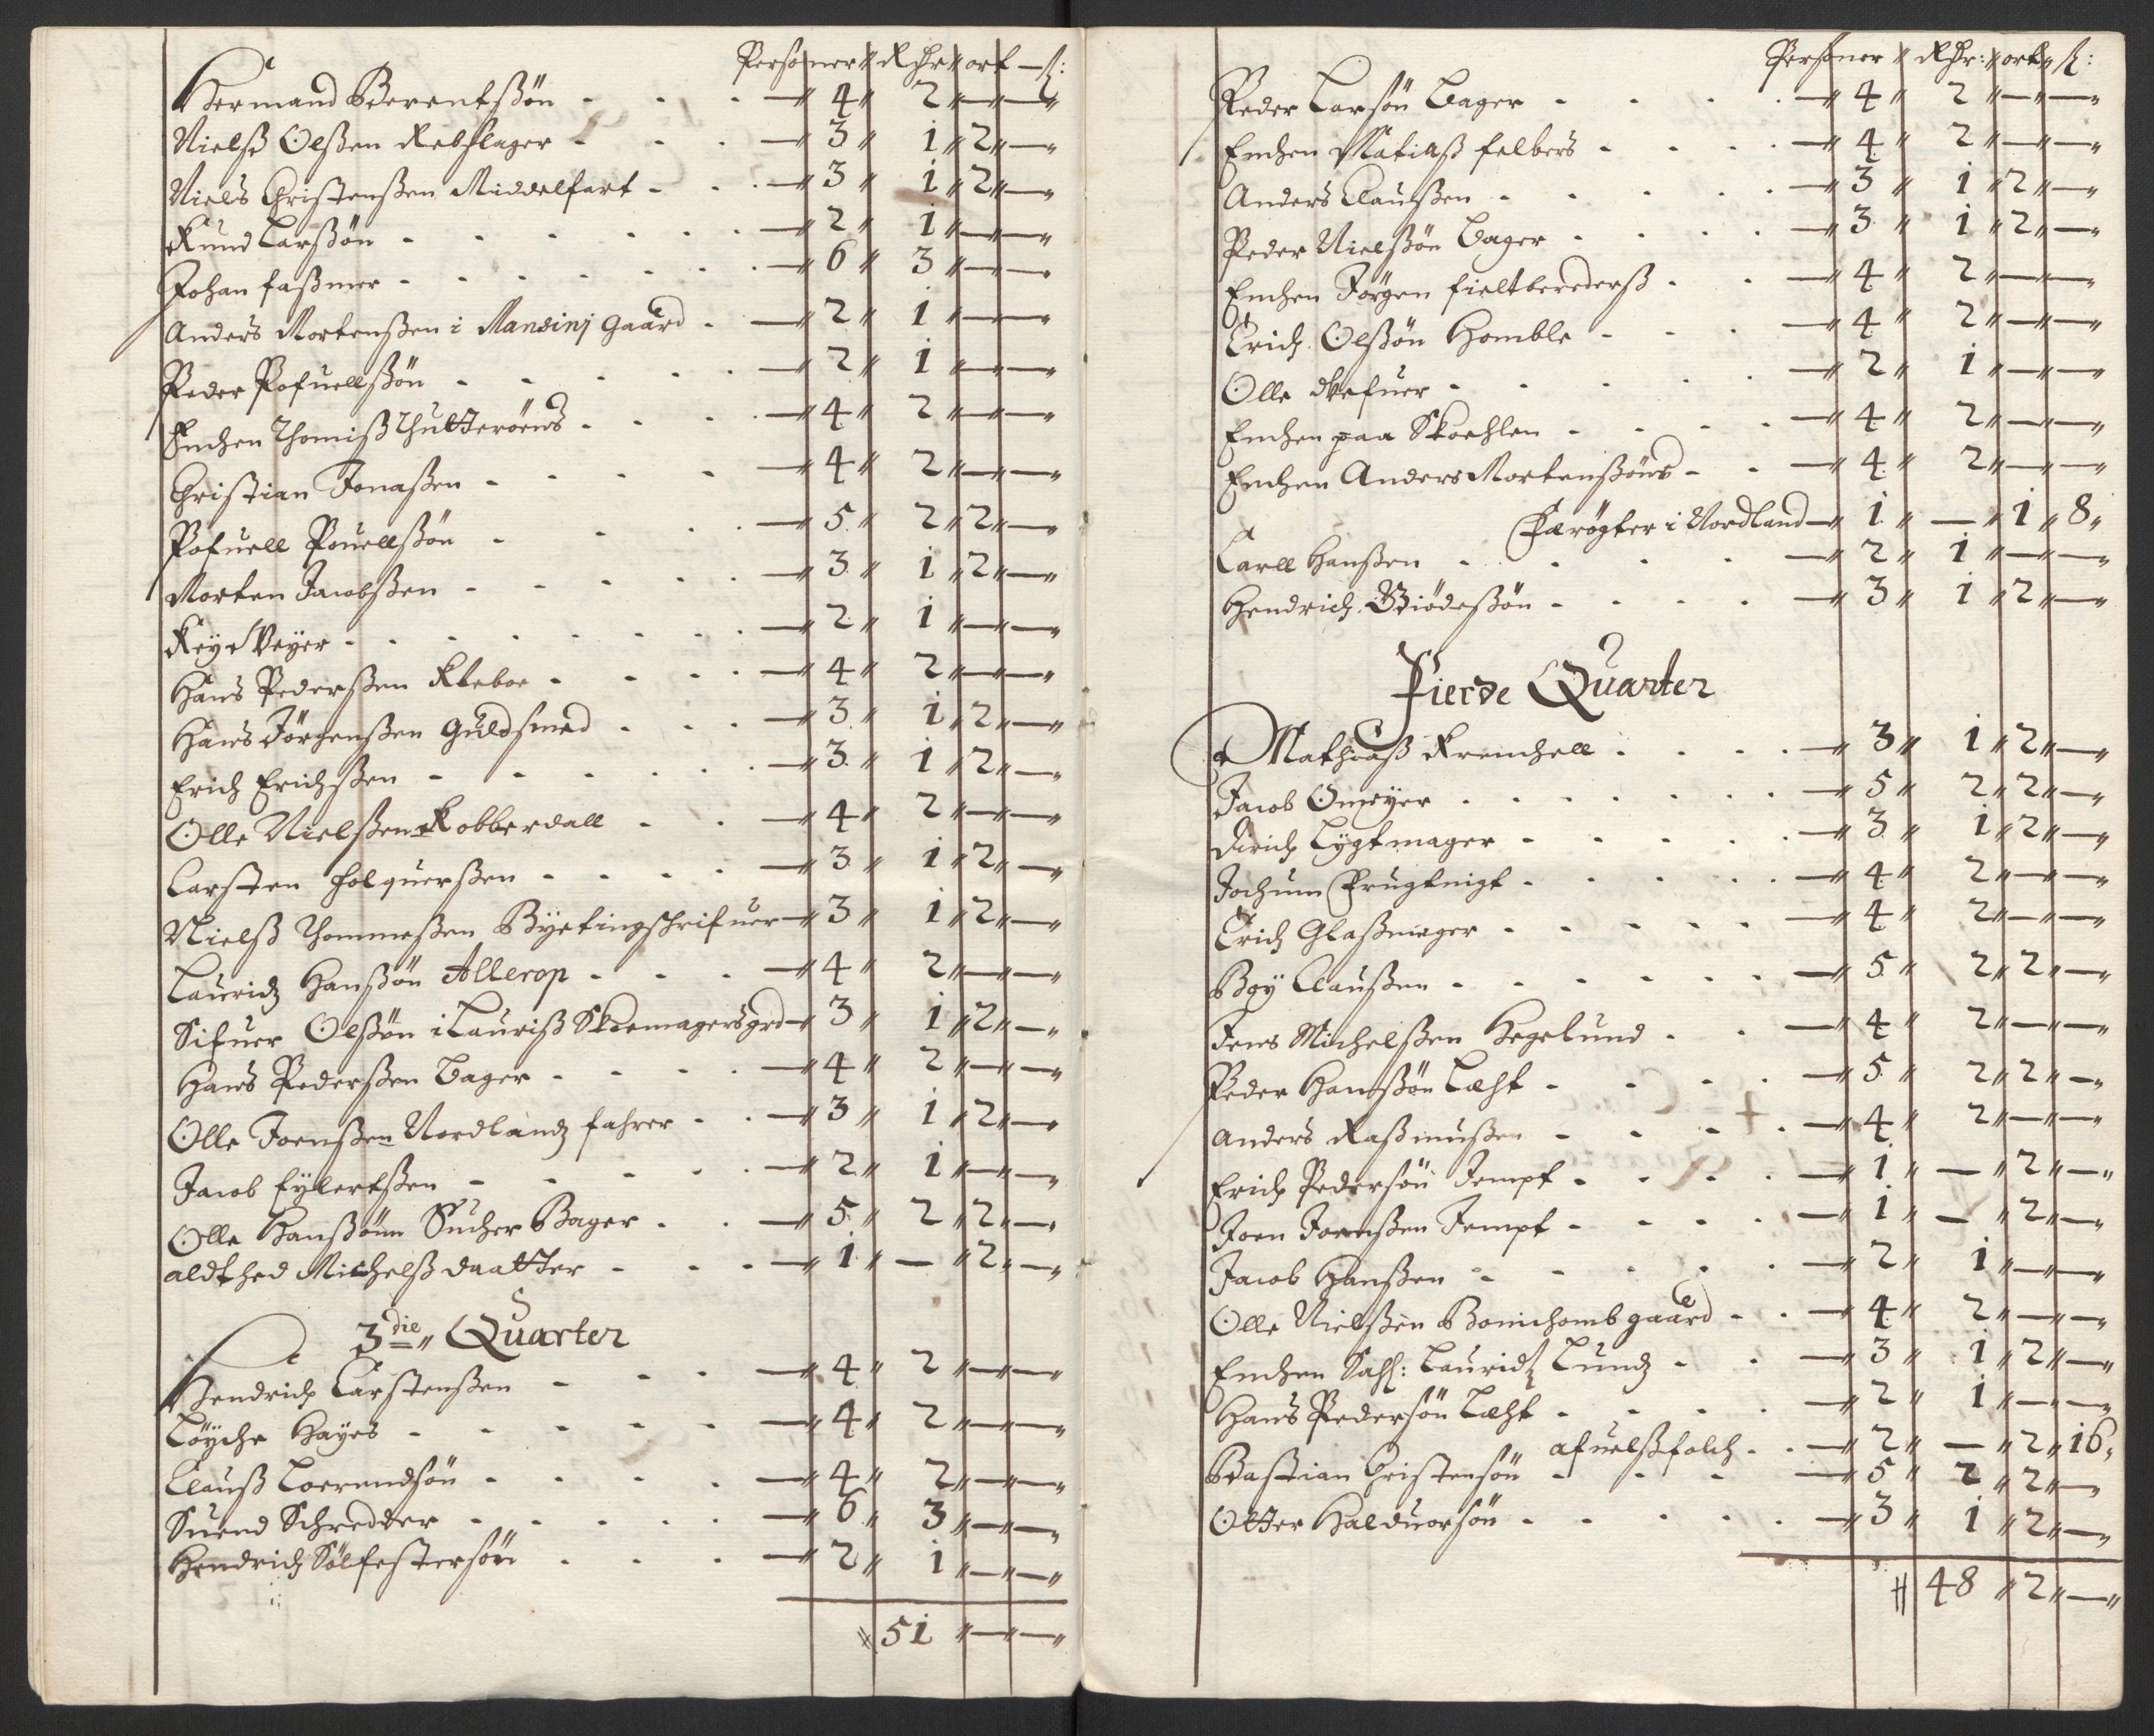 Personer Rdr ort ß:
Hermand Berentßøn - - - 4 2 — —
Nielß Olßen Rebslager - - - 3 1 2 —
Niels Christenßen Middelfart - - - 3 1 2 —
Knud Larßøn - - - 2 1 — —
Johan faßmer - - - 6 3 — —
Anders Mortenßen i Mansinj gaard - 2 1 — —
Peder Pofuelßøn - - - 2 1 — —
Enchen Thomiß Thutterøens - - - 4 2 — —
Christian Jonaßen - - - 4 2 — —
Pofuell Pouellßøn - - - 5 2 2 —
Morten Jacobßen - - - 3 1 2 —
Reye Veyer - - - 2 1 — —
Hans Pederßen Kleboe - - - 4 2 — —
Hans Jørgenßen Guldsmed - - - 3 1 2 —
Erich Erichßen - - - 3 1 2 —
Olle Nielßen Robberdall - - 4 2 — —
Carsten Holquerßen - - - 3 1 2 —
Nielß Thommeßen Byetingschrifuer 3 1 2 —
Lauridz Hanßøn Allerop - - - 4 2 — —
Sifuer Olßøn i Lauriß Skoemagersgrd 3 1 2 —
Hans Pederßen Bager - - - 4 2 — —
Olle Joenßen Nordlandz fahrer - - 3 1 2 —
Jacob Eylertßen - - - 2 1 — —
Olle Hanßønn Sucher Bager - - 5 2 2 —
aldthed Michelß daatter - - - 1 — 2 —
3die Quarter
Hendrich Carstenßen - - - 4 2 — —
Løyche Hayes - - - 4 2 — —
Clauß Loerendsøn - - - 4 2 — —
Suend Schredder - - - 6 3 — —
Hendrich Sølfestersøn - - - 2 1 — —
51 — —
Personer Rdr: ort ß:
Peder Larsøn Bager - - - 4 2 — —
Enchen Matiaß felbers - - - 4 2 — —
Anders Claußen - - - 3 1 2 —
Peder Nielßøn Bager - - - 3 1 2 —
Enchen Jørgen fieltberederß - - 4 2 — —
Erich Olßøn Homble - - - 4 2 — —
Olle Skefuer - - - 2 1 — —
Enchen paa Skoehlen - - - 4 2 — —
Enchen Anders Mortenßøns - - 4 2 — —
Færøgter i Nordland 1 — 1 8
Carll Hanßen - - - 2 1 — —
Hendrich Biødeßøn - - - 3 1 2 —
Fierde Quarter
Mathiaß Frenchell - - - 3 1 2 —
Jacob Omeyer - - - 5 2 2 —
Dirich Lygtmager - - - 3 1 2 —
Jochum Frugtnigt - - - 4 2 — —
Erich Glaßmager - - - 4 2 — —
Boy Claußen - - - 5 2 2 —
Jens Michelßen Hegelund - - 4 2 — —
Peder Hanßøn Læht - - - 5 2 2 —
Anders Raßmußen - - - 4 2 — —
Erich Pedersøn Jempt - - - 1 — 2 —
Joen Joenßen Jempt - - - 1 — 2 —
Jacob Hanßen - - - 2 1 — —
Olle Nielßen Bonichomb gaard - - 4 2 — —
Enchen Sahl: Lauridtz Lundz - - 3 1 2 —
Hans Pedersøn Læht - - - 2 1 — —
afuelßfolch - - 2 — 2 16
Bastian Christensøn - - - 5 2 2 —
Otter Halduorsøn - - - 3 1 2 —
48 2 —